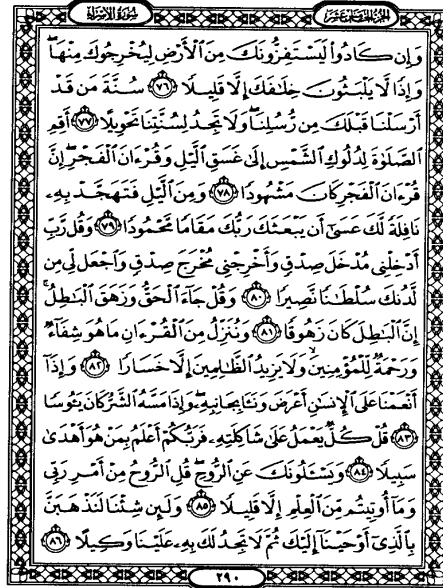 سورة الإسراء
الجزء الخامس عشر
وَإِن كَادُوا۟ لَيَسْتَفِزُّونَكَ مِنَ ٱلْأَرْضِ لِيُخْرِجُوكَ مِنْهَا ۖ
وَإِذًا لَّا يَلْبَثُونَ خِلَٰفَكَ إِلَّا قَلِيلًا ٧٦ سُنَّةَ مَن قَدْ
أَرْسَلْنَا قَبْلَكَ مِن رُّسُلِنَا ۖ وَلَا تَجِدُ لِسُنَّتِنَا تَحْوِيلًا ٧٧ أَقِمِ
ٱلصَّلَوٰةَ لِدُلُوكِ ٱلشَّمْسِ إِلَىٰ غَسَقِ ٱلَّيْلِ وَقُرْءَانَ ٱلْفَجْرِ ۖ إِنَّ
قُرْءَانَ ٱلْفَجْرِ كَانَ مَشْهُودًا ٧٨ وَمِنَ ٱلَّيْلِ فَتَهَجَّدْ بِهِۦ
نَافِلَةً لَّكَ عَسَىٰٓ أَن يَبْعَثَكَ رَبُّكَ مَقَامًا مَّحْمُودًا ٧٩ وَقُل رَّبِّ
أَدْخِلْنِى مُدْخَلَ صِدْقٍ وَأَخْرِجْنِى مُخْرَجَ صِدْقٍ وَٱجْعَل لِّى مِن
لَّدُنكَ سُلْطَٰنًا نَّصِيرًا ٨٠ وَقُلْ جَآءَ ٱلْحَقُّ وَزَهَقَ ٱلْبَٰطِلُ ۚ
إِنَّ ٱلْبَٰطِلَ كَانَ زَهُوقًا ٨١ وَنُنَزِّلُ مِنَ ٱلْقُرْءَانِ مَا هُوَ شِفَآءٌ
وَرَحْمَةٌ لِّلْمُؤْمِنِينَ ۙ وَلَا يَزِيدُ ٱلظَّٰلِمِينَ إِلَّا خَسَارًا ٨٢ وَإِذَآ
أَنْعَمْنَا عَلَى ٱلْإِنسَٰنِ أَعْرَضَ وَنَـَٔا بِجَانِبِهِۦ ۖ وَإِذَا مَسَّهُ ٱلشَّرُّ كَانَ يَـُٔوسًا
٨٣ قُلْ كُلٌّ يَعْمَلُ عَلَىٰ شَاكِلَتِهِۦ فَرَبُّكُمْ أَعْلَمُ بِمَنْ هُوَ أَهْدَىٰ
سَبِيلًا ٨٤ وَيَسْـَٔلُونَكَ عَنِ ٱلرُّوحِ ۖ قُلِ ٱلرُّوحُ مِنْ أَمْرِ رَبِّى
وَمَآ أُوتِيتُم مِّنَ ٱلْعِلْمِ إِلَّا قَلِيلًا ٨٥ وَلَئِن شِئْنَا لَنَذْهَبَنَّ
بِٱلَّذِىٓ أَوْحَيْنَآ إِلَيْكَ ثُمَّ لَا تَجِدُ لَكَ بِهِۦ عَلَيْنَا وَكِيلًا ٨٦
٢٩٠